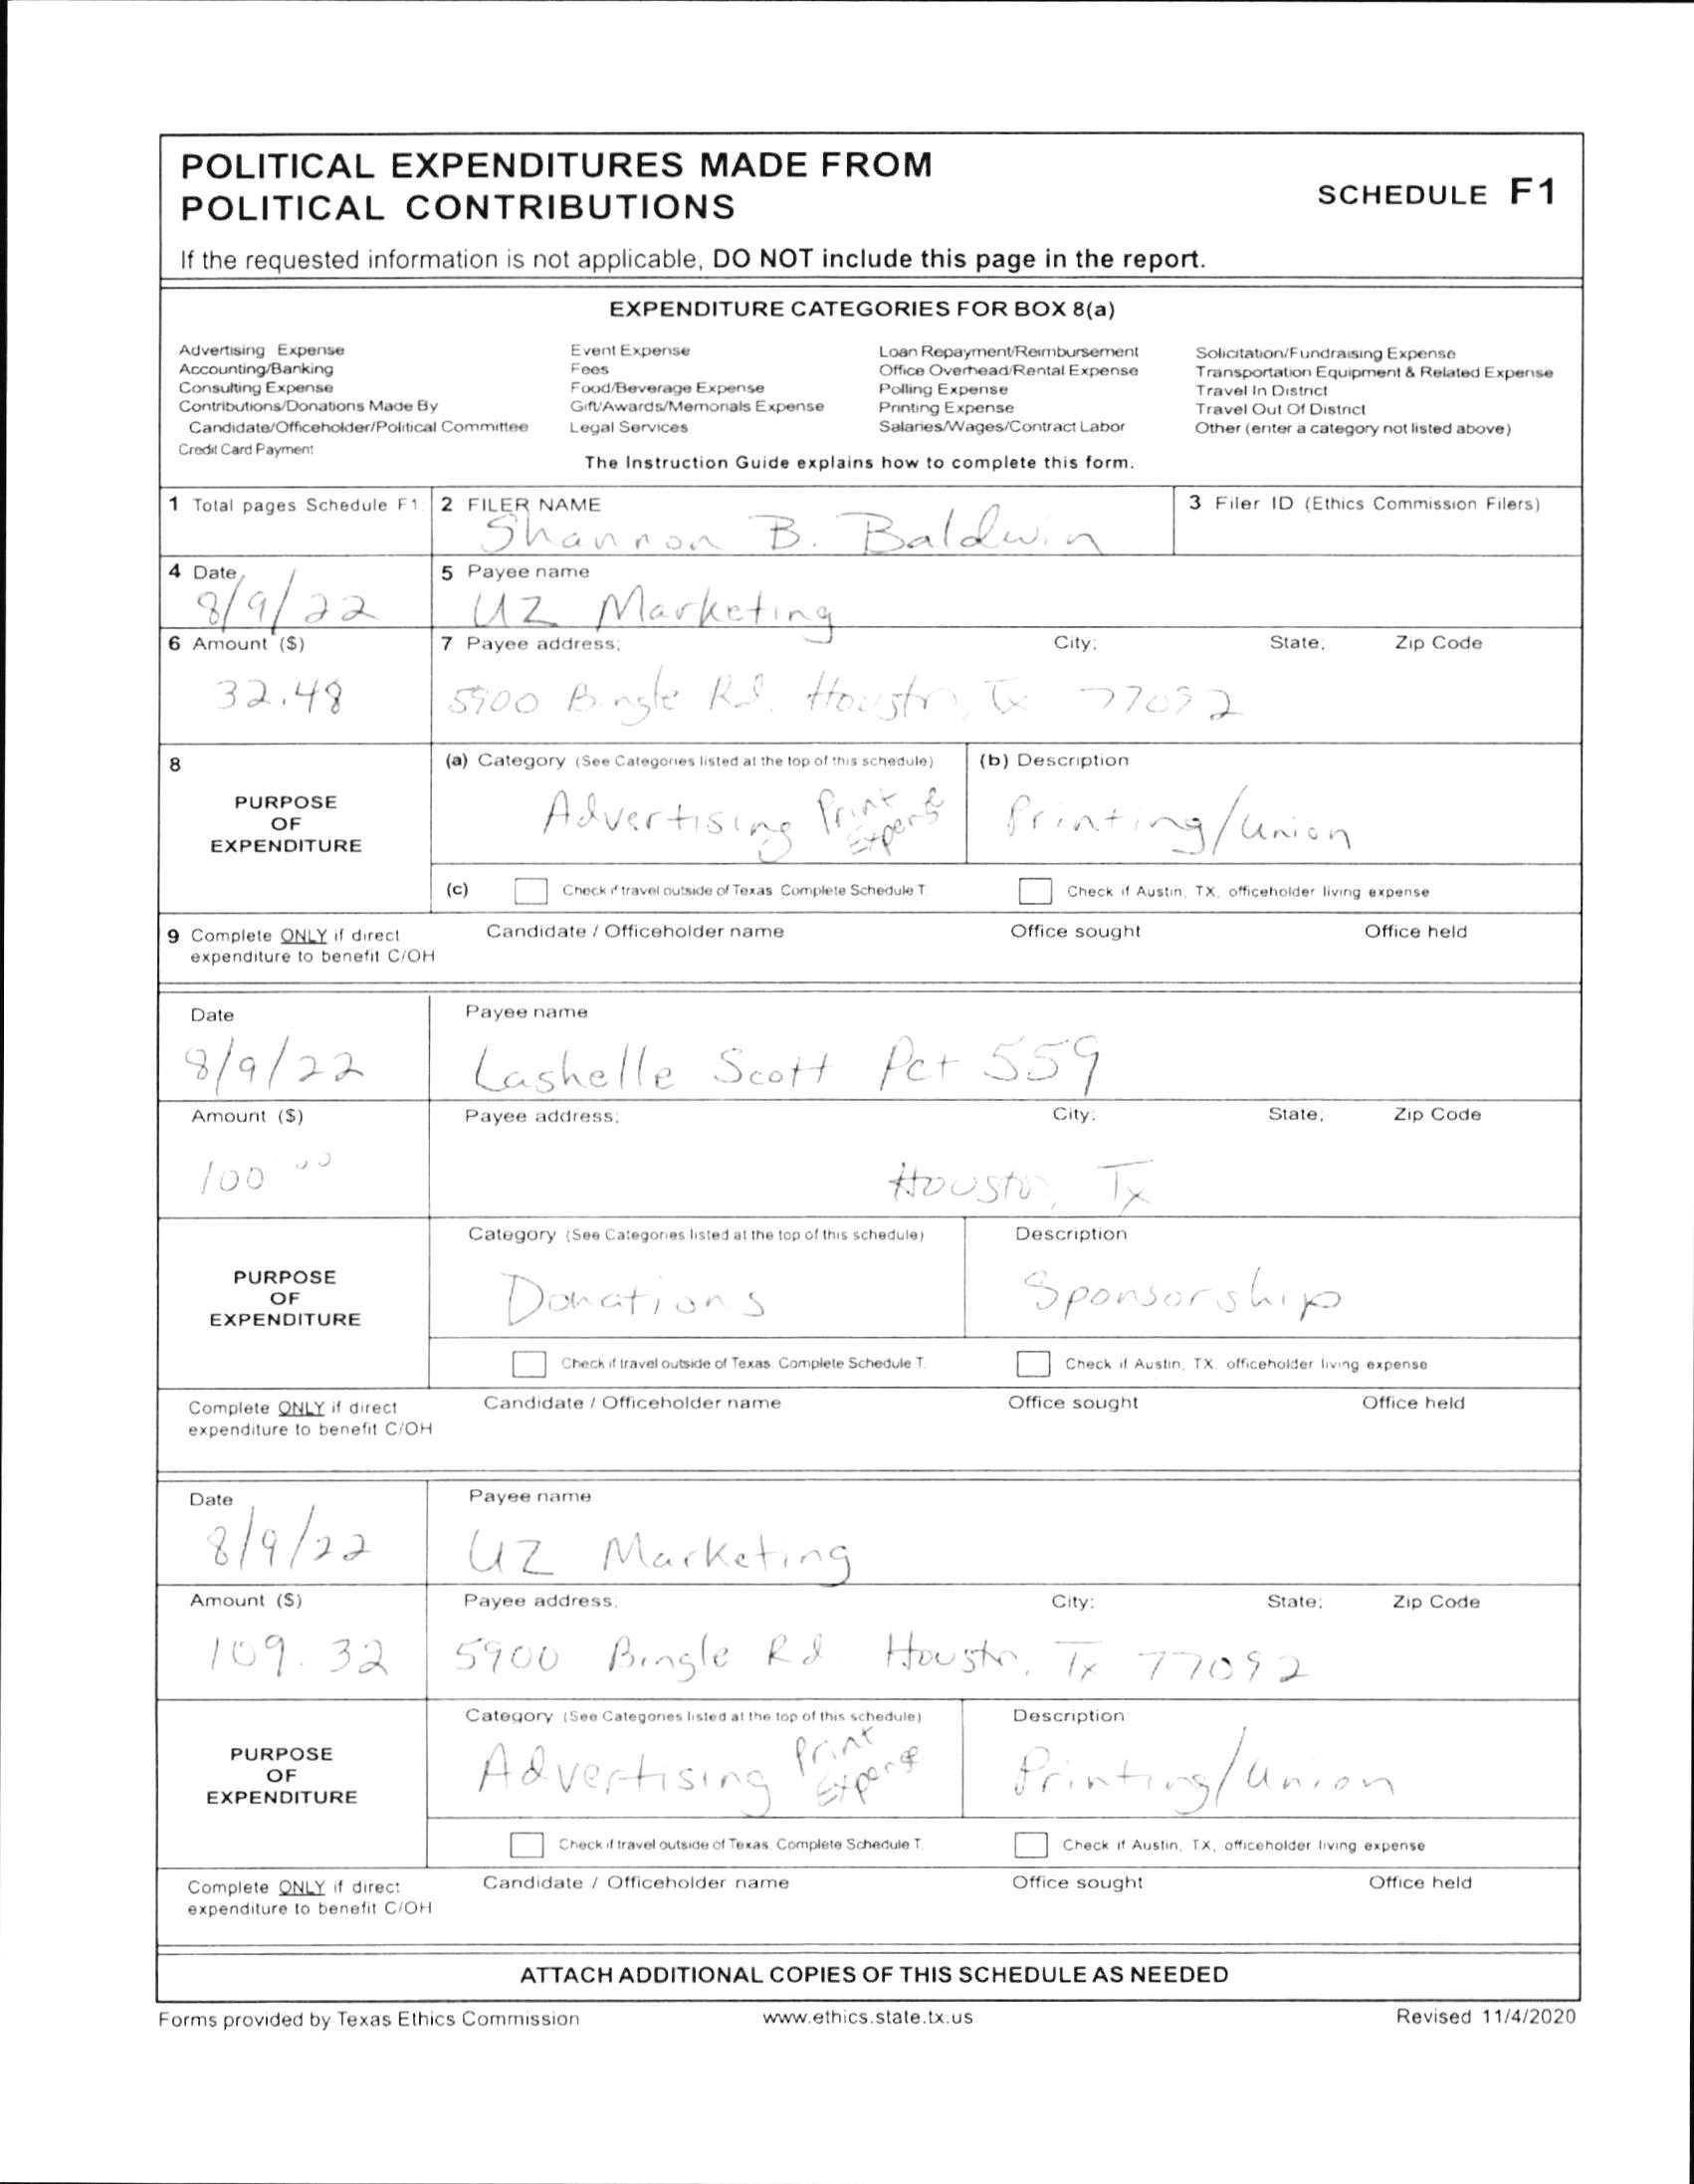 POLITICAL EXPENDITURES MADE FROM
POLITICAL CONTRIBUTIONS
SCHEDULE F1
If the requested information is not applicable, DO NOT include this page in the report.
EXPENDITURE CATEGORIES FOR BOX 8(a)
Advertising Expense
Accounting/Banking
Consulting Expense
Contributions/Donations Made By
Candidate/Officeholder/Political Committee
Credit Card Payment
Event Expense
Fees
Food/Beverage Expense
Gift/Awards/Memorials Expense
Legal Services
Loan Repayment/Reimbursement
Office Overhead/Rental Expense
Polling Expense
Printing Expense
Salaries/Wages/Contract Labor
Solicitation/Fundraising Expense
Transportation Equipment & Related Expense
Travel In District
Travel Out Of District
Other (enter a category not listed above)
The Instruction Guide explains how to complete this form.
1 Total pages Schedule F1
2 FILER NAME
Shannon B. Baldwin
3 Filer ID (Ethics Commission Filers)
4 Date
8/9/22
5 Payee name
UZ Marketing
6 Amount ($)
32.48
7 Payee address; City; State; Zip Code
5900 Bingle Rd. Houston, Tx 77092
8 PURPOSE
OF
EXPENDITURE
(a) Category (See Categories listed at the top of this schedule)
Advertising Print
(b) Description
Printing/Union
(c) Check if travel outside of Texas. Complete Schedule T.
Check if Austin, TX, officeholder living expense
9 Complete ONLY if direct
expenditure to benefit C/OH
Candidate / Officeholder name Office sought Office held
Date
8/9/22
Payee name
Lashelle Scott Pct 559
Amount ($)
100 00
Payee address; City; State; Zip Code
Houston, Tx
PURPOSE
OF
EXPENDITURE
Category (See Categories listed at the top of this schedule)
Donations
Description
Sponsorship
Check if travel outside of Texas. Complete Schedule T.
Check if Austin, TX, officeholder living expense
Complete ONLY if direct
expenditure to benefit C/OH
Candidate / Officeholder name Office sought Office held
Date
8/9/22
Payee name
UZ Marketing
Amount ($)
109.32
Payee address; City; State; Zip Code
5900 Bingle Rd Houston, Tx 77092
PURPOSE
OF
EXPENDITURE
Category (See Categories listed at the top of this schedule)
Advertising Print
Description
Printing/Union
Check if travel outside of Texas. Complete Schedule T.
Check if Austin, TX, officeholder living expense
Complete ONLY if direct
expenditure to benefit C/OH
Candidate / Officeholder name Office sought Office held
ATTACH ADDITIONAL COPIES OF THIS SCHEDULE AS NEEDED
Forms provided by Texas Ethics Commission www.ethics.state.tx.us Revised 11/4/2020